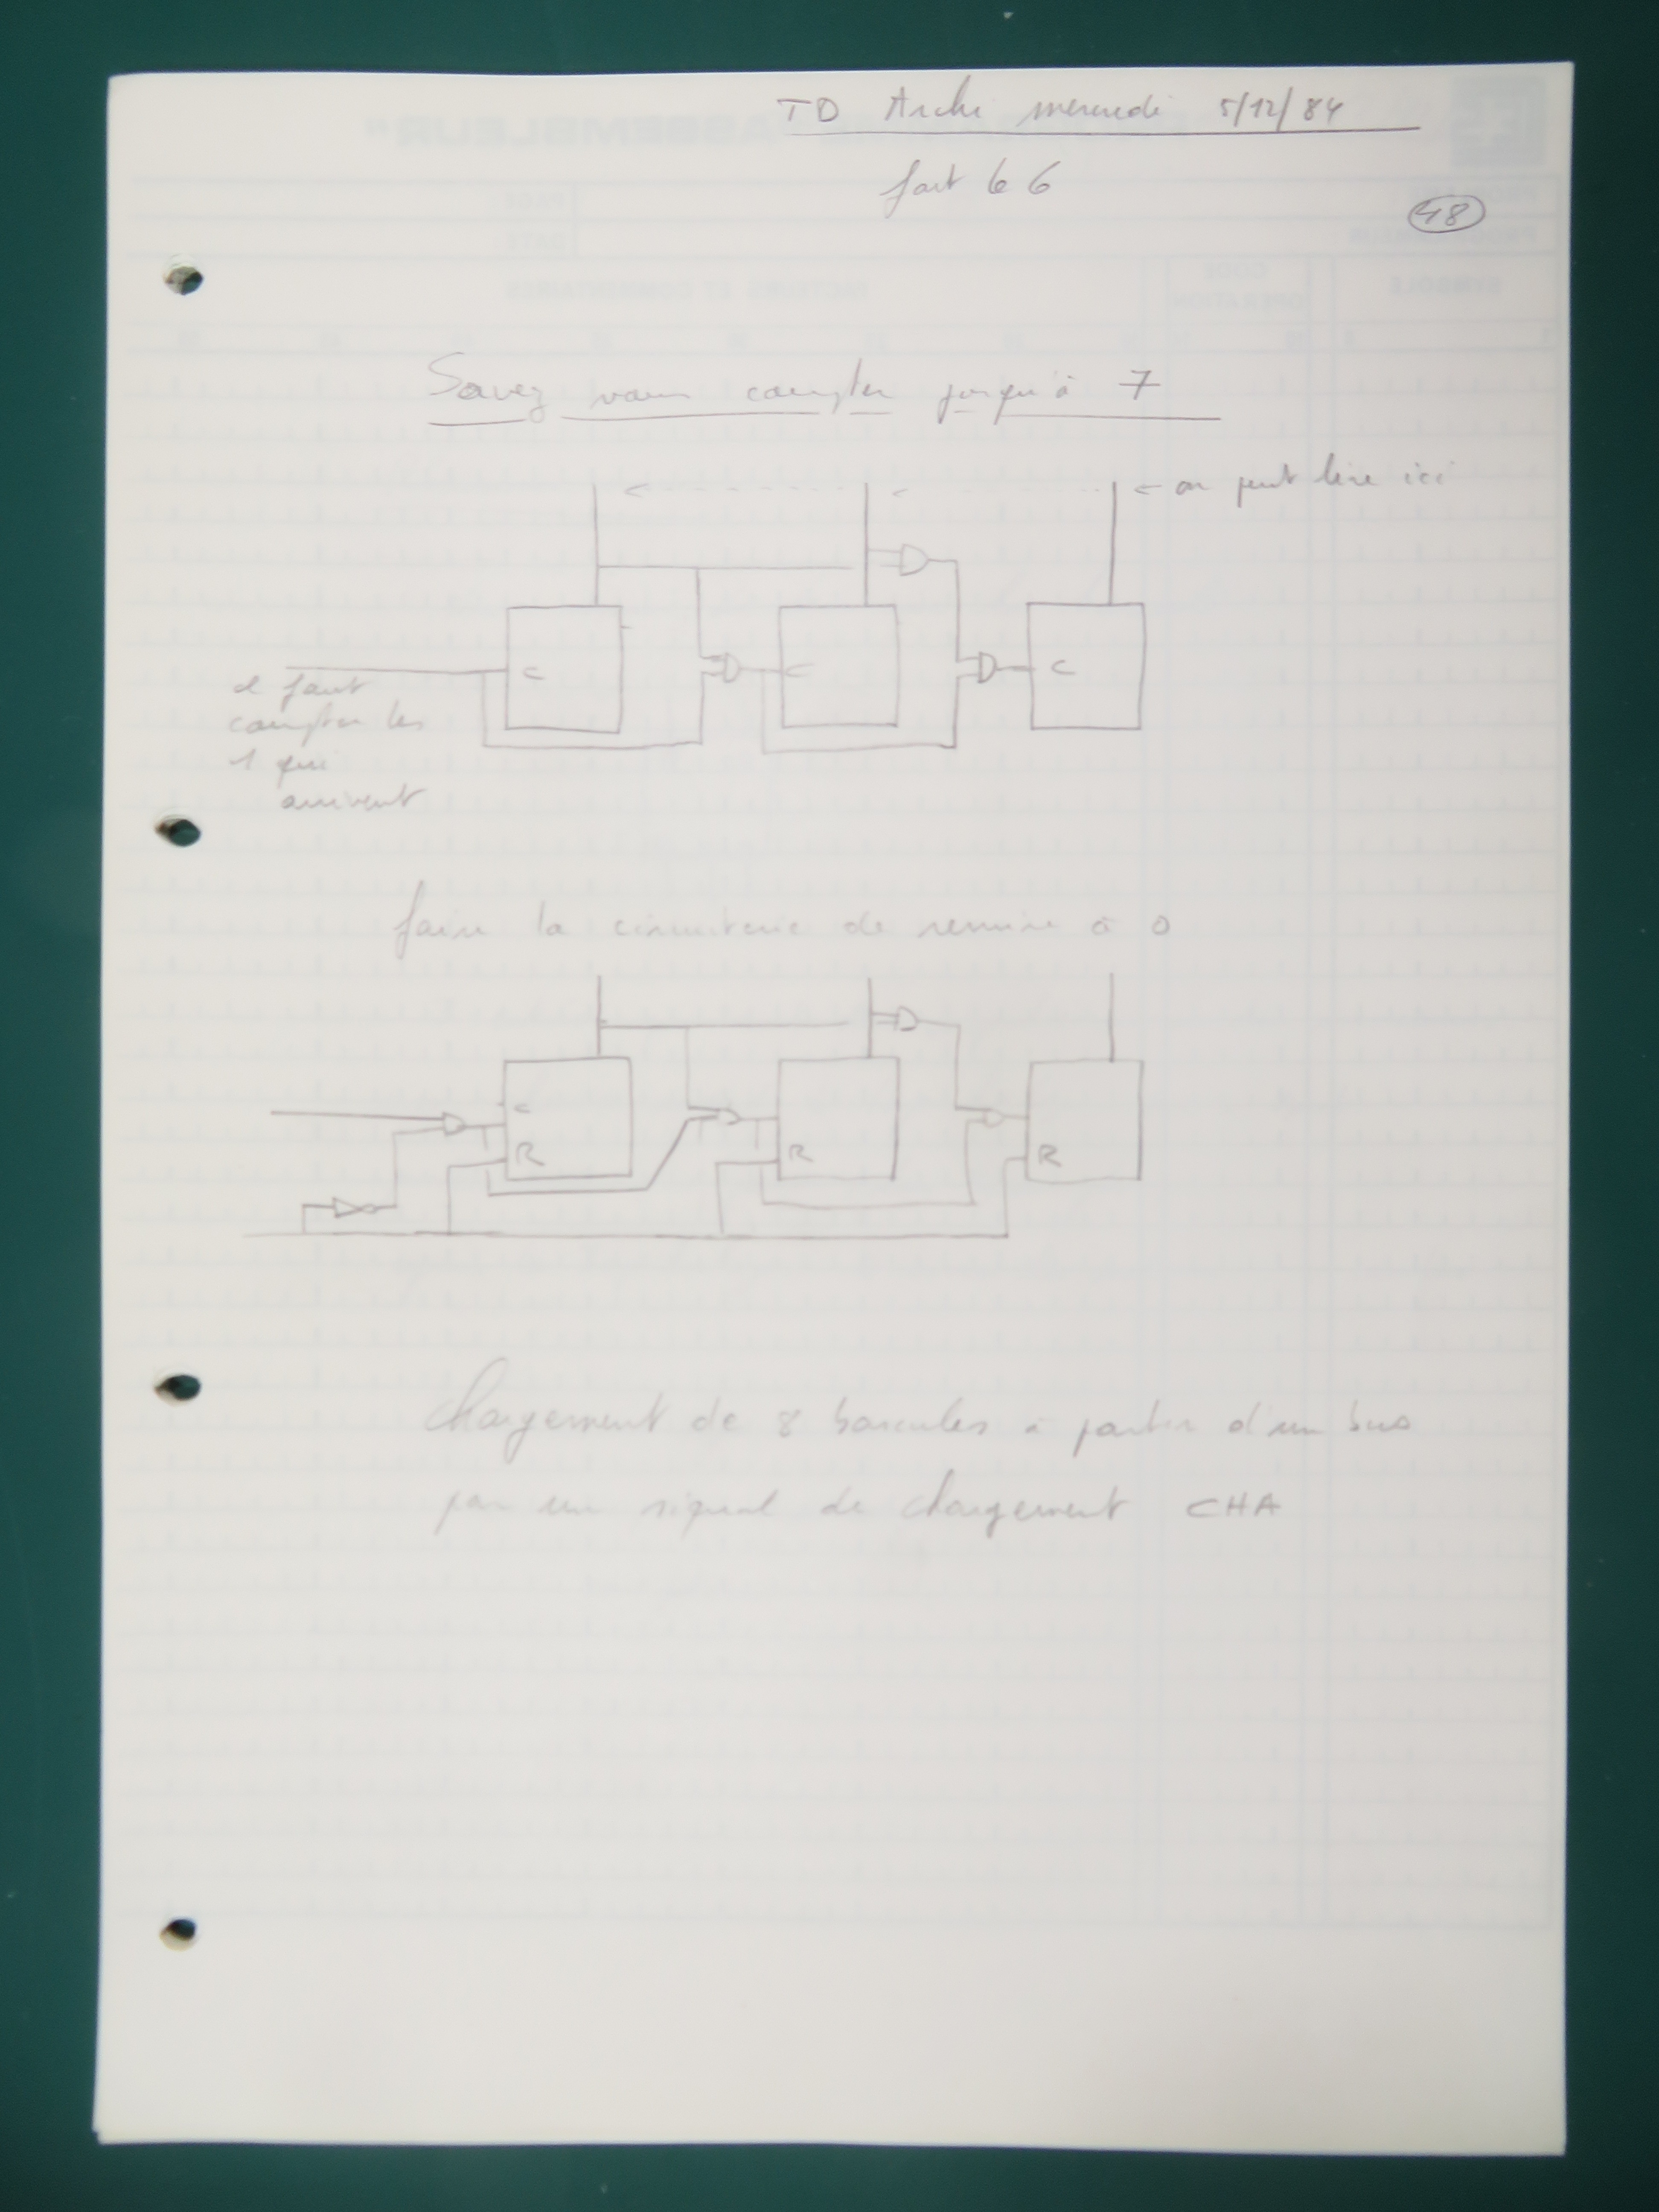 TD Archi mercredi 5/12/84
fait le 6
48
Savez vous compter jusqu'à 7
← on peut lire ici
C
C
C
il faut
compter les
1 qui
arrivent
faire la circuiterie de remise à 0
C
R
R
R
Chargement de 8 bascules à partir d'un bus
par un signal de chargement CHA